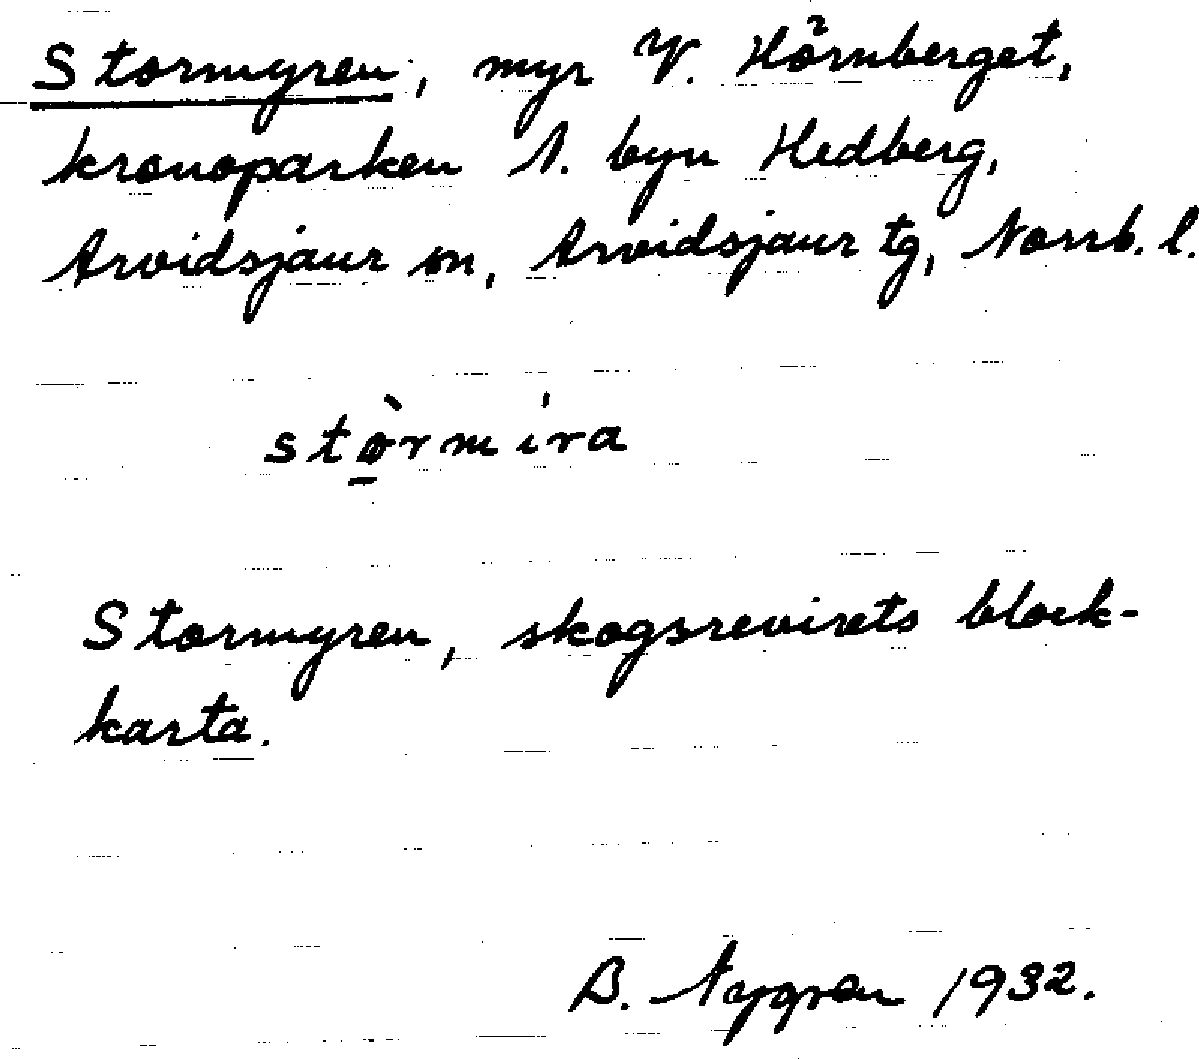 Stormyren, myr V. Hörnberget,
kronoparken N. byn Hedberg,
Arvidsjaur sn, Arvidsjaur tg, Norrb. l.
stò̱rmíra
Stormyren, skogsrevirets block-
karta.
B. Nygren 1932.